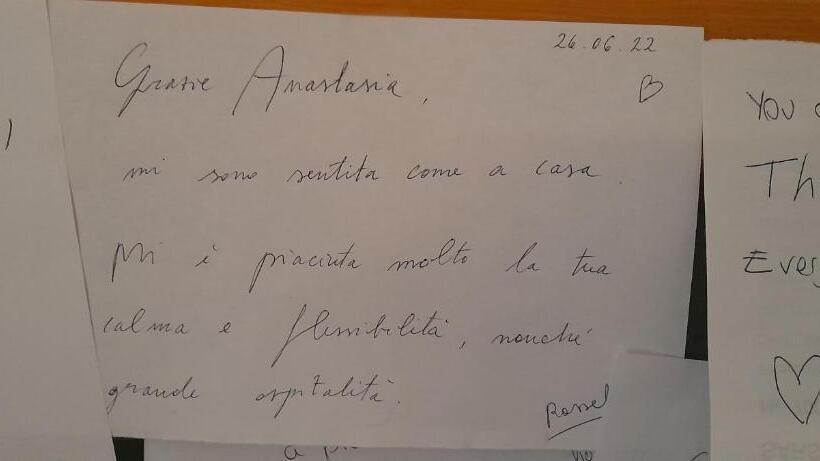 26.06.22
Grazie Anastasia,
mi sono sentita come a casa.
Mi è piaciuta molto la tua
calma e flessibilità, nonché
grande ospitalità.
Rossel
YOU
Th
Every
a pi